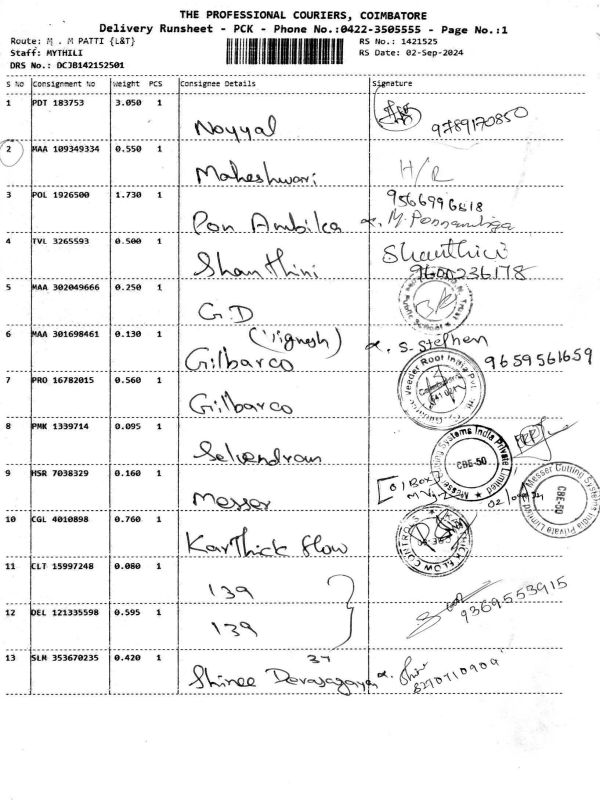 THE PROFESSIONAL COURIERS, COIMBATORE
Delivery Runsheet - PCK - Phone No.:0422-3505555 - Page No.:1
Route: M . M PATTI {L&T} RS No.: 1421525
Staff: MYTHILI RS Date: 02-Sep-2024
DRS No.: DCJB142152501
S No Consignment No Weight PCS Consignee Details Signature
1 PDT 183753 3.050 1 Noyyal 9789170850
2 MAA 109349334 0.550 1 Maheshwari H/R
3 POL 1926500 1.730 1 Pon Ambika 9566996618
M. Ponnambiga
4 TVL 3265593 0.500 1 Shanthini Shanthini
9600236178
5 MAA 302049666 0.250 1 G.D
6 MAA 301698461 0.130 1 Gilbarco (Vignesh) S. Stephen
9659561659
7 PRO 16782015 0.560 1 Gilbarco
8 PMK 1339714 0.095 1 Selvendran
9 HSR 7038329 0.160 1 Messer
Messer Cutting Systems India Private Limited
CBE-50
Messer Cutting Systems India Private Limited
CBE-50
10 CGL 4010898 0.760 1 Karthick flow
11 CLT 15997248 0.080 1 139
12 DEL 121335598 0.595 1 139 9369553915
13 SLM 353670235 0.420 1 37
8270710909